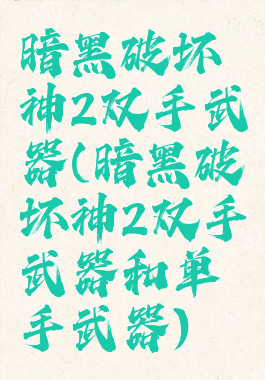 暗黑破坏
神2双手武
器(暗黑破
坏神2双手
武器和单
手武器)